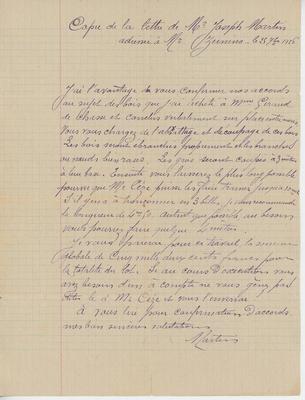 Copie de la lettre de Mr Joseph Martin
adressée à Mr
J'ai l'avantage de vous confirmer nos accords
au sujet des bois que j'ai acheté à Mme Giraud
de Chasse et conclus verbalement sur place entre nous
Vous vous chargez de l'abattage et de coupage de ces bois
Les bois seront ébranchés proprement et les branches
ou nœuds bien rasés. Les gros seront coupés à
à leur base. Ensuite vous laisserez le plus long possible
pourvu que Mr Cèze puisse les
S'il y en a à tronçonner en 3 billes, je vous recommande
la longueur de autant que possible au besoin
vous pourrez faire quelques 4 mètres.
Je vous réserverai pour ce travail la somme
globale de Cinq mille deux cents francs pour
la totalité du lot. Si au cours d'exécution vous
avez besoin d'un à compte ne vous gênez pas
dites le à Mr Cèze et vous l'enverrai
À vous lire pour confirmation d'accords
mes bien sincères salutations
Martin